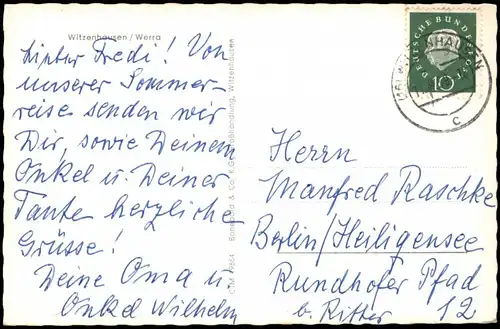 Witzenhausen / Werra
Lieber Fredi! Von
unserer Sommer-
reise senden wir
Dir, sowie Deinem
Onkel u. Deiner
Tante herzliche
Grüsse!
Deine Oma u.
Onkel Wilhelm
DEUTSCHE BUNDESPOST
10
c
Herrn
Manfred Raschke
Berlin/Heiligensee
Rundhofer Pfad
b. Ritter 12
& Co. K.G. Großhandlung, Witzenhausen